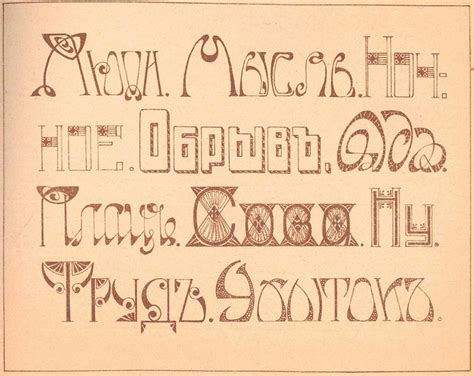 Люди. Мысль. Ноч-
ное. Обрывъ. Ода.
Плащъ. Сова. Ну.
Трудъ. Убытокъ.